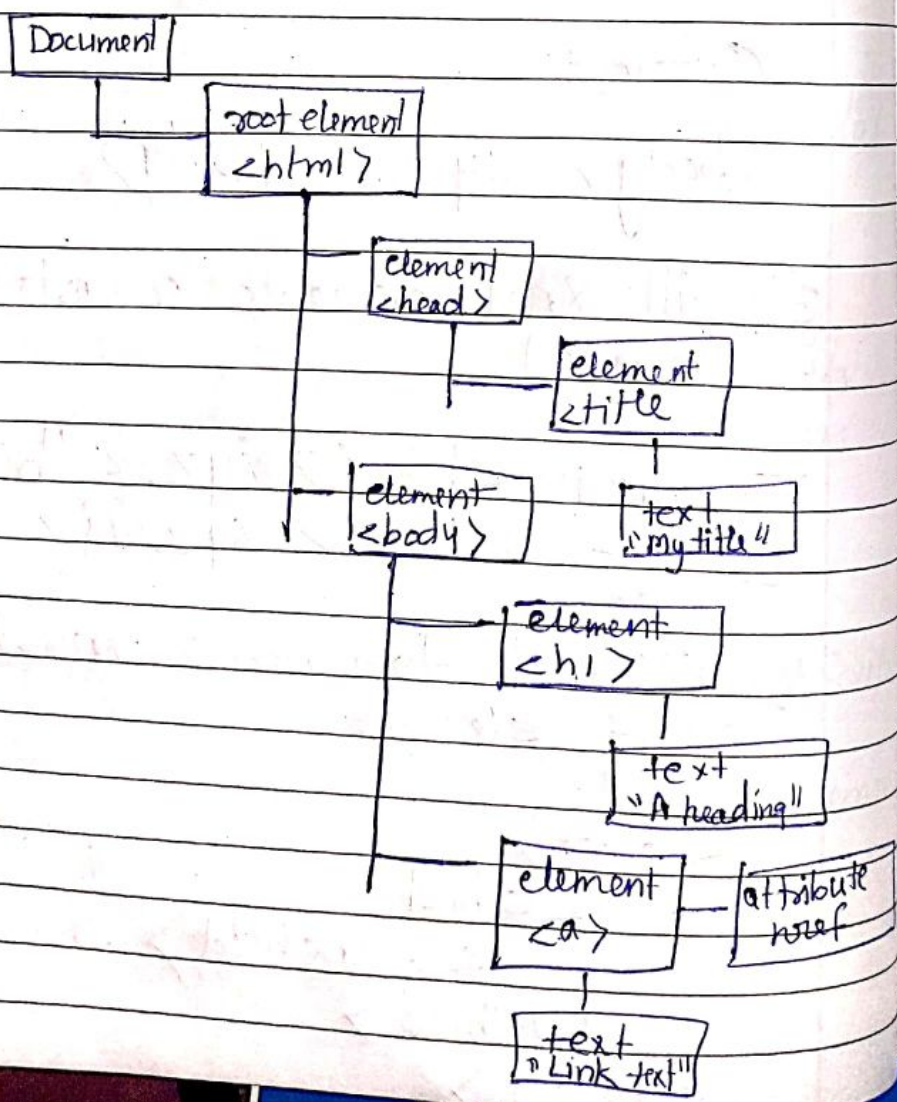 Document
root element
<html>
element
<head>
element
<title
element
<body>
text
"My title"
element
<h1>
text
"A heading"
element
<a>
attribute
href
text
"Link text"